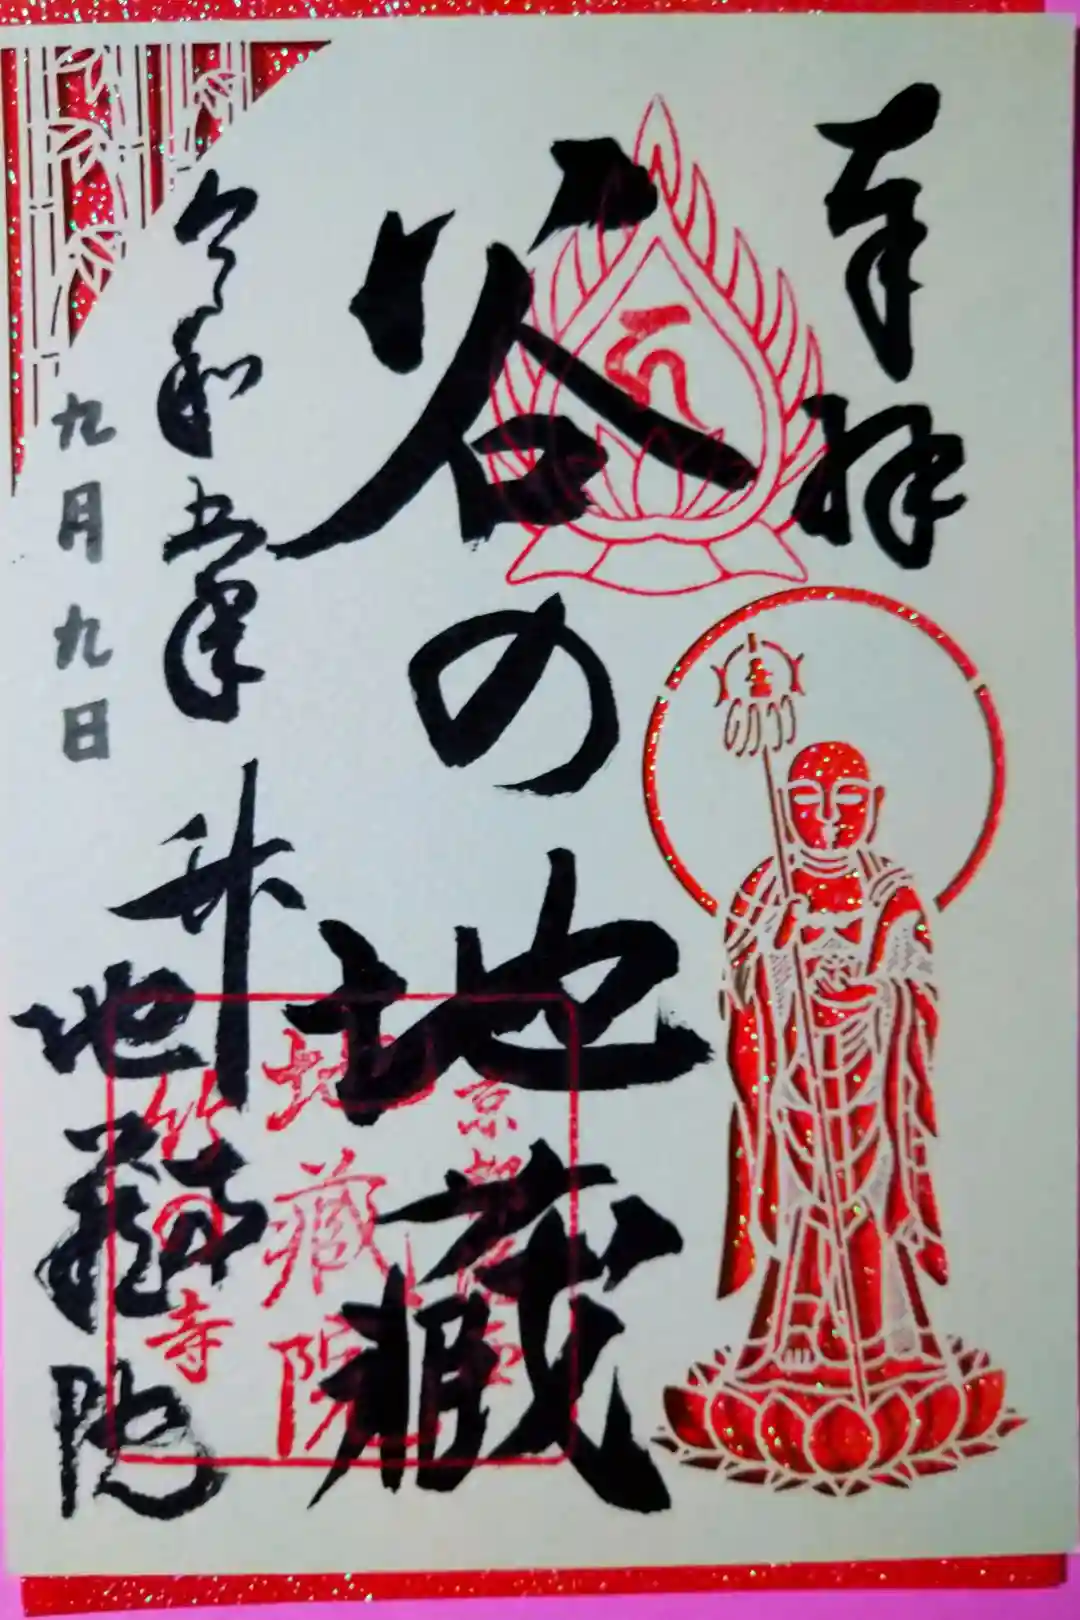 奉拝
谷の地蔵
令和五年
九月九日
地蔵院
京都
地藏院
竹の寺